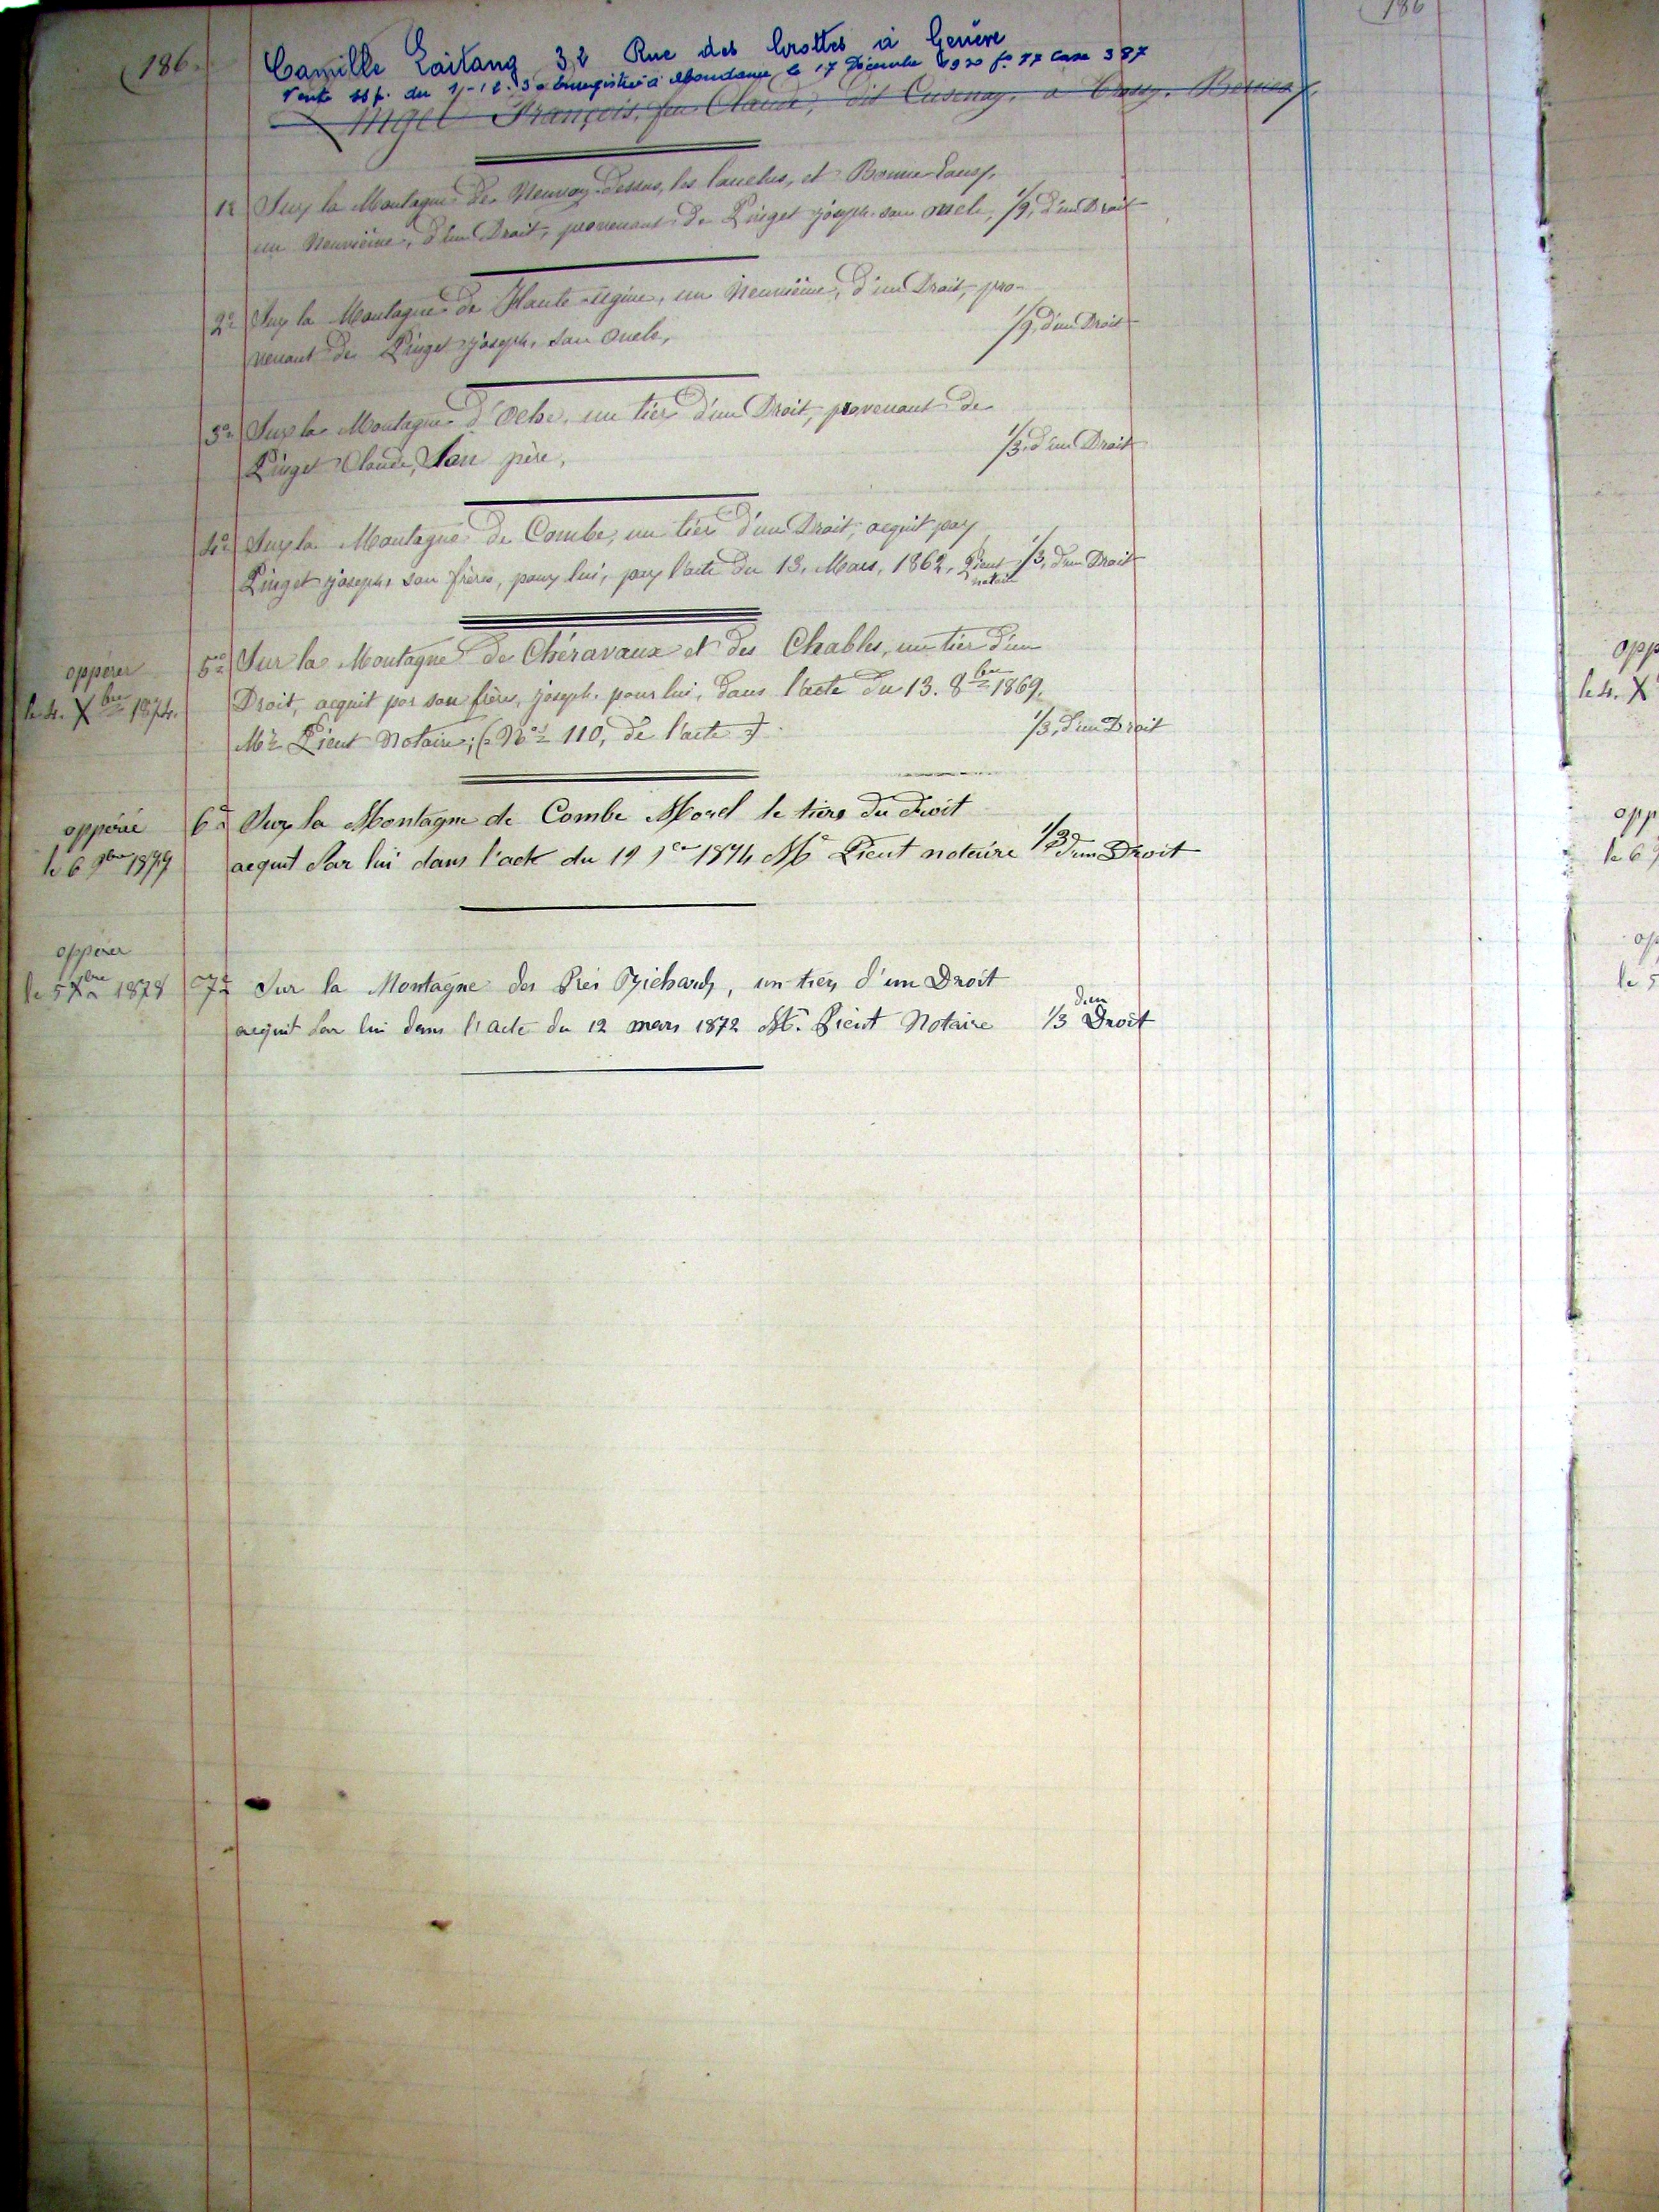 186.
186
Camille Laitang 32 Rue des Grottes à Genève
Vente ss p. du 1 -12. 30 Enregistré à Abondance le 17 Décembre 1930 f. 77 Case 387
François, feu Claude, dit Cusenay, à
1º Sur la Montagne de Neuvaz Dessus, les lanches, et Bonne Eaux,
un Neuvième, d'un Droit, provenant de Pinget joseph. son oncle, 1/9, d'un Droit
2º Sur la Montagne de Haute-Ugine, un Neuvième, d'un Droit, pro-
venant de Pinget joseph. son oncle, 1/9, d'un Droit
3º Sur la Montagne d'Oche, un tier d'un Droit, provenant de
Pinget Claude, Son père, 1/3, d'un Droit
4º Sur la Montagne de Combe, un tier d'un Droit, acquit par
Pinget joseph, son frère, pour lui, par l'acte du 13, Mars, 1862, Pient notaire 1/3, d'un Droit
opperer
le 4. Xbre 1874.
5º Sur la Montagne de Chéravaux et des Chables, un tier d'un
Droit, acquit par son frère, joseph. pour lui, dans l'acte du 13. 8bre 1869.
Me Pient Notaire; (Nº 110, de l'acte) 1/3, d'un Droit
opperé
le 6 9bre 1877
6º Sur la Montagne de Combe Morel le tiers du droit
acquit Par lui dans l'acte du 19 1874 Me Pient notaire 1/3 d'un Droit
opperer
le 5 Xbre 1878
7º Sur la Montagne des Prés Richard, un tier d'un Droit
acquit Par lui dans l'acte du 12 mars 1872 Me Pient Notaire 1/3 d'un Droit
opp
le 4. X
opp
le 6
op
le 5